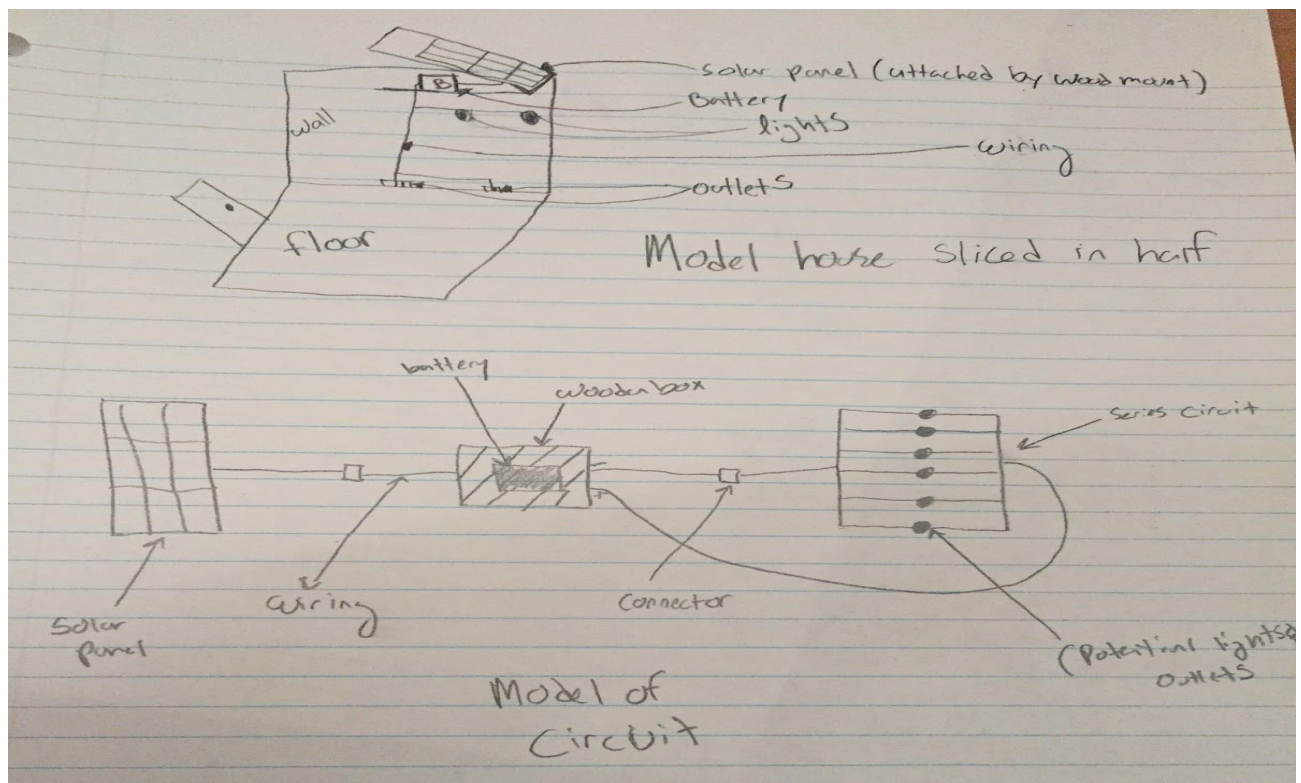 Solar panel (attached by wood mount)
B
Battery
lights
wall
wiring
outlets
floor
Model house sliced in half
battery
wooden box
Series Circuit
+
wiring
Connector
Solar
panel
(Potential lights &
outlets
Model of
Circuit